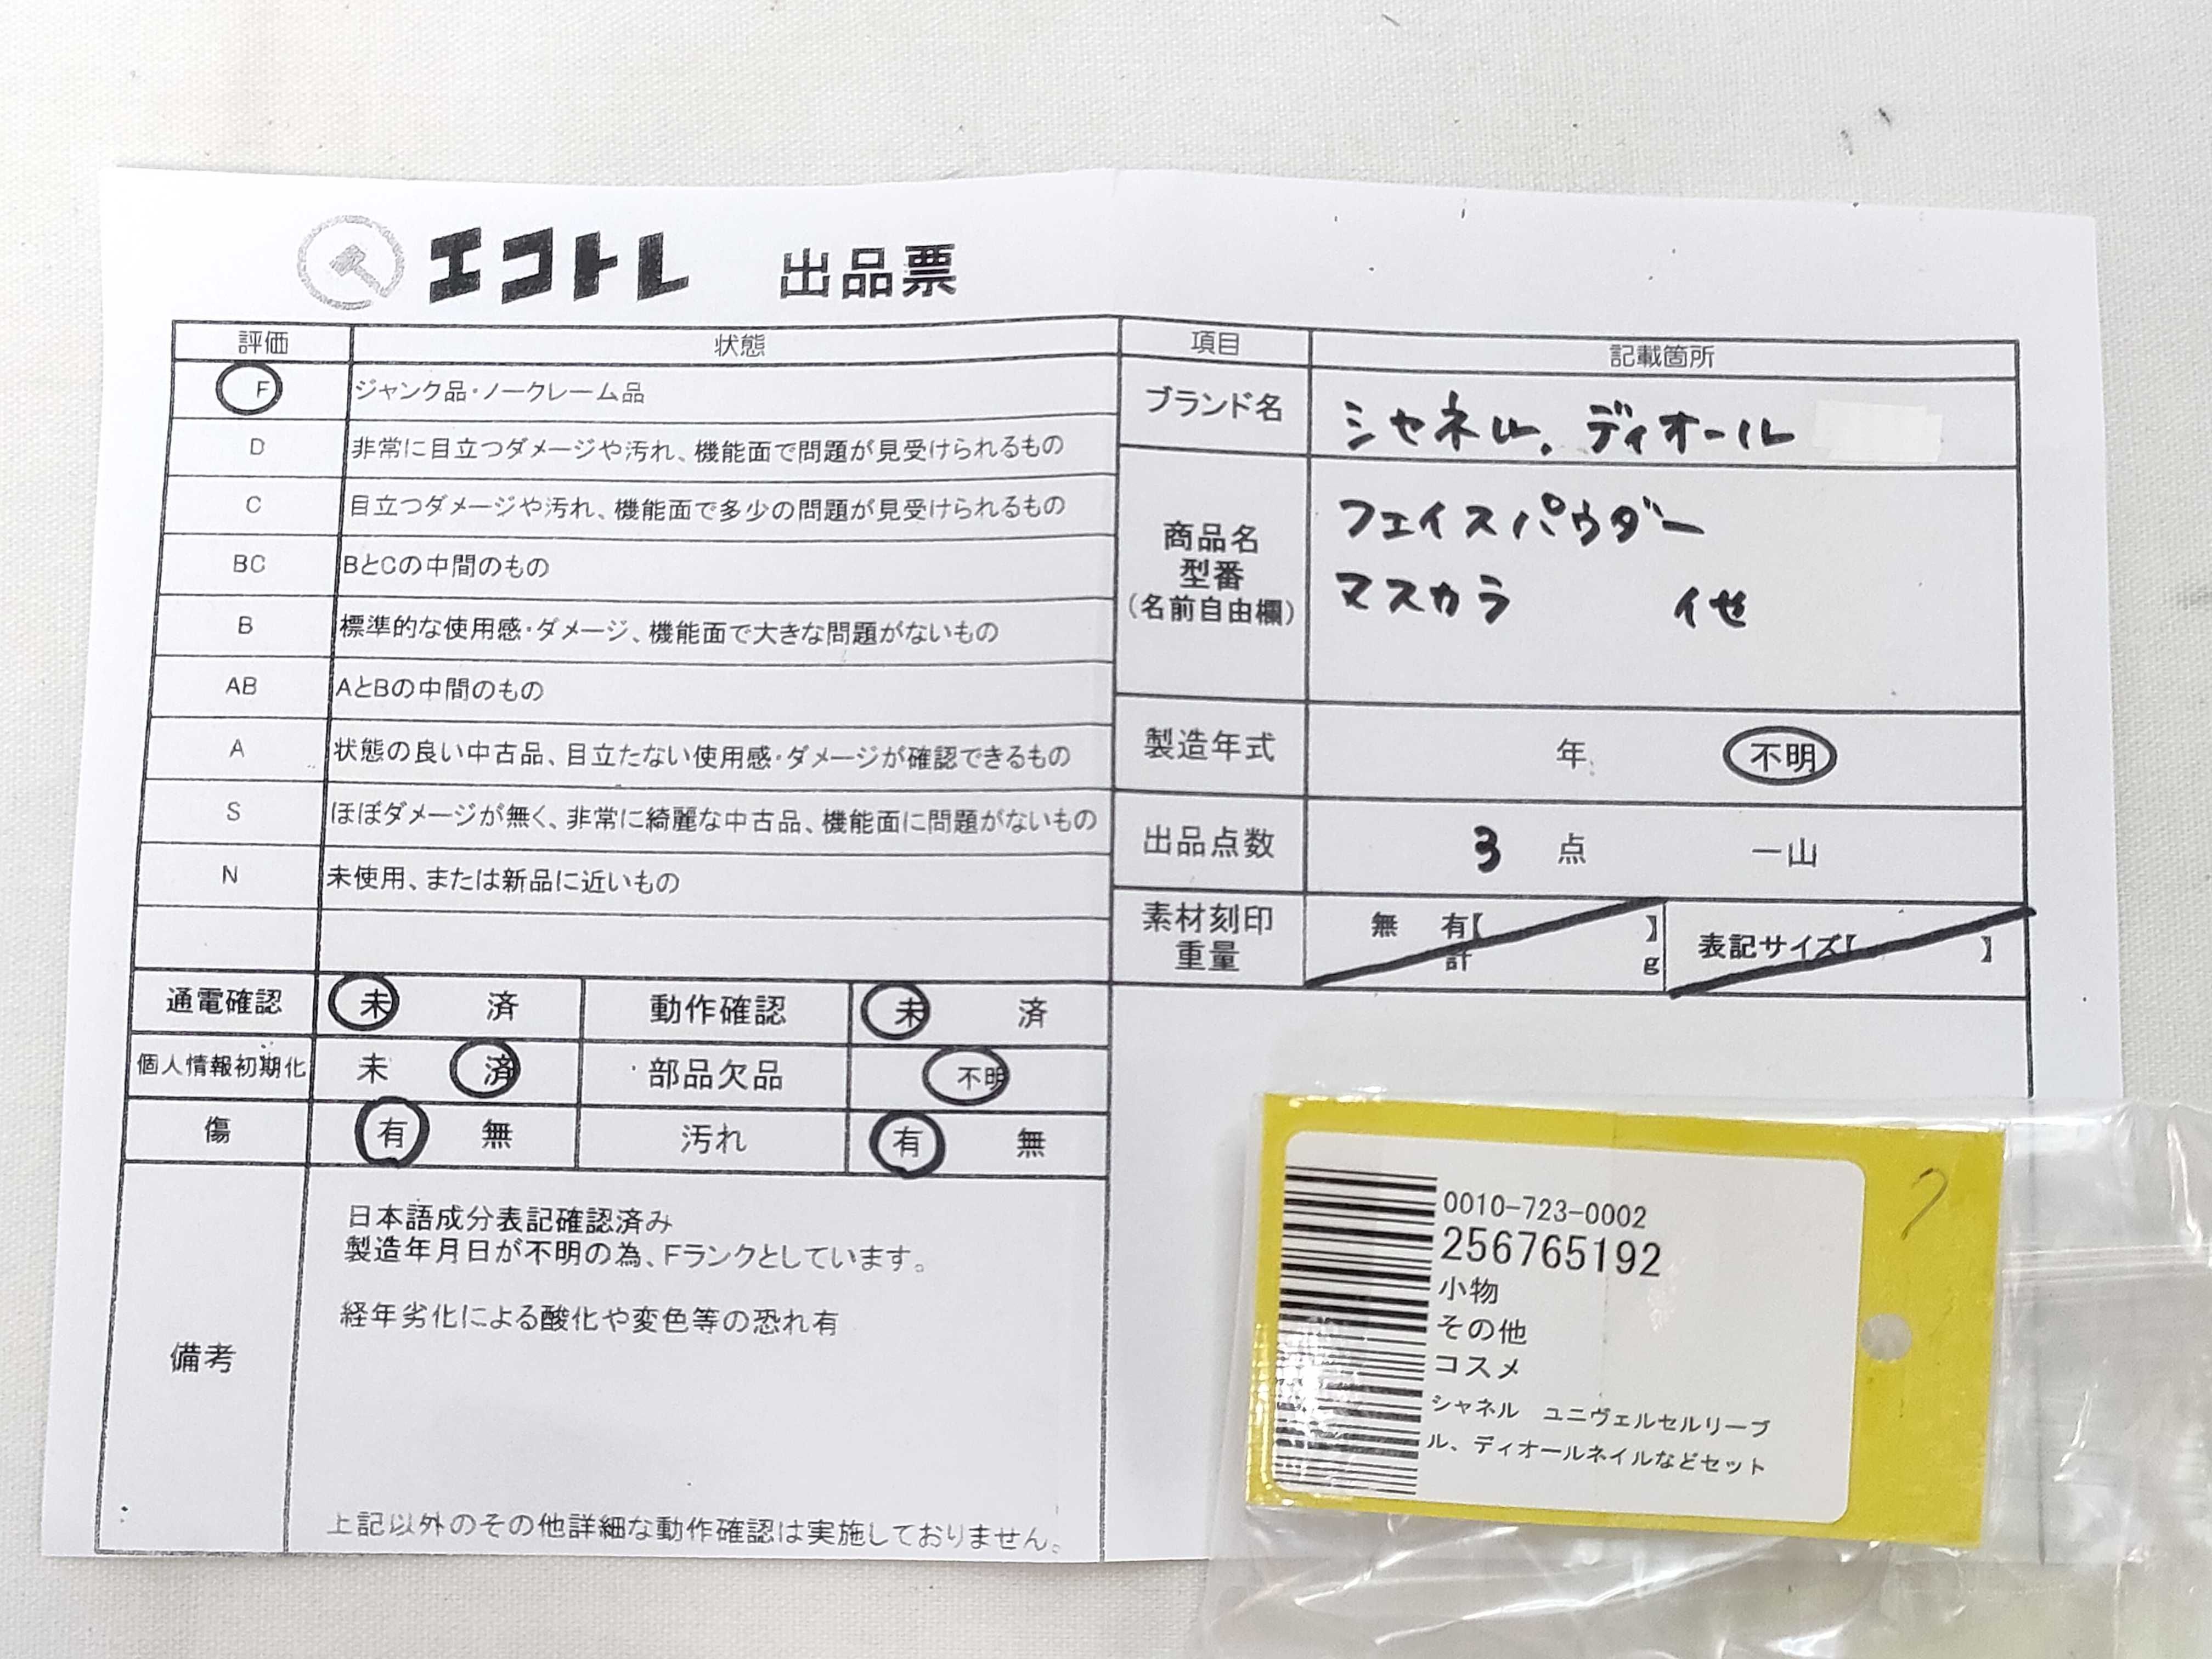 エコトレ 出品票
評価 状態
F ジャンク品・ノークレーム品
D 非常に目立つダメージや汚れ、機能面で問題が見受けられるもの
C 目立つダメージや汚れ、機能面で多少の問題が見受けられるもの
BC BとCの中間のもの
B 標準的な使用感・ダメージ、機能面で大きな問題がないもの
AB AとBの中間のもの
A 状態の良い中古品、目立たない使用感・ダメージが確認できるもの
S ほぼダメージが無く、非常に綺麗な中古品、機能面に問題がないもの
N 未使用、または新品に近いもの
通電確認 未 済 動作確認 未 済
個人情報初期化 未 済 部品欠品 不明
傷 有 無 汚れ 有 無
備考
日本語成分表記確認済み
製造年月日が不明の為、Fランクとしています。
経年劣化による酸化や変色等の恐れ有
上記以外のその他詳細な動作確認は実施しておりません。
項目 記載箇所
ブランド名 シャネル.ディオール
商品名
型番
(名前自由欄)
フェイスパウダー
マスカラ 他
製造年式 年 不明
出品点数 3 点 一山
素材刻印
重量
無 有【 】
計 g
表記サイズ【 】
0010-723-0002
256765192
小物
その他
コスメ
シャネル ユニヴェルセルリーブ
ル、ディオールネイルなどセット